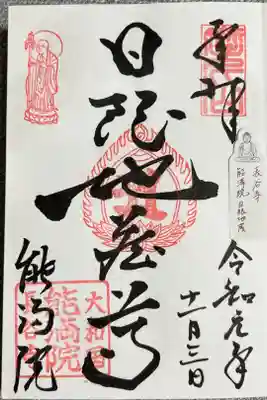 奉拝
長谷寺
能満院日限地蔵
令和元年
十一月三日
日限地蔵尊
大和國
能満院
能満院